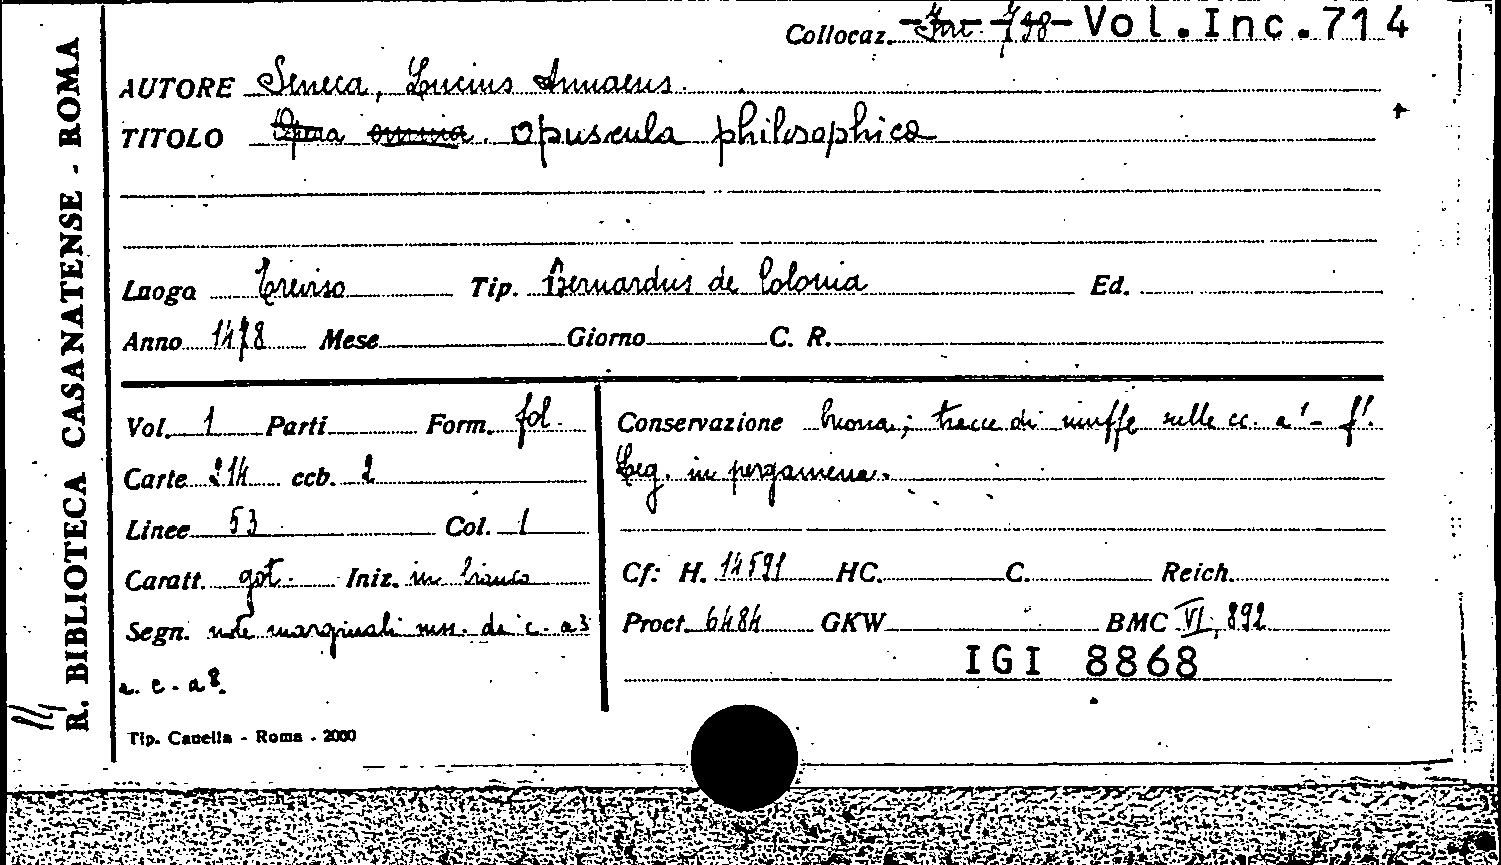 R. BIBLIOTECA CASANATENSE - ROMA
Collocaz. Inc. 798 Vol.Inc.714
AUTORE Seneca, Lucius Annaeus.
TITOLO Opera omnia. Opuscula philosophica
Luogo Treviso Tip. Bernardus de Colonia Ed.
Anno 1478 Mese Giorno C. R.
Vol. 1 Parti Form. fol.
Conservazione buona; tracce di muffe sulle cc. a¹ - f¹.
Carte 214 ccb. 2
Leg. in pergamena.
Linee 53 Col. 1
Caratt. got. Iniz. in bianco
Cf: H. 14591 HC. C. Reich.
Segn. note marginali mss. da c. a3
Proct. 6484 GKW BMC VI, 892
a c. a8.
IGI 8868
Tip. Canella - Roma - 2000